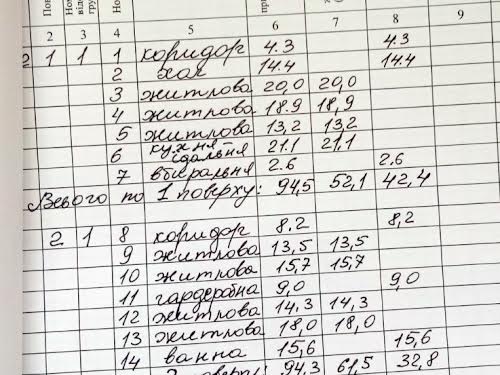 2 3 4 5 6 7 8 9
1 1 1 коридор 4.3 4.3
2 хол 14.4 14.4
3 житлова 20,0 20,0
4 житлова 18.9 18,9
5 житлова 13,2 13,2
6 кухня їдальня 21.1 21,1
7 вбиральня 2.6 2.6
Всього по 1 поверху: 94,5 52,1 42,4
2 1 8 коридор 8.2 8,2
9 житлова 13,5 13,5
10 житлова 15,7 15,7
11 гардеробна 9,0 9,0
12 житлова 14,3 14,3
13 житлова 18,0 18,0
14 ванна 15,6 15,6
94,3 61,5 32,8